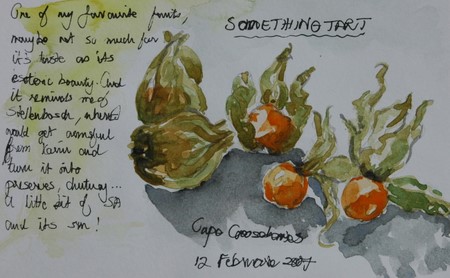 One of my favourite fruits,
maybe not so much for
it's taste as its
esoteric beauty. And
it reminds me of
Stellenbosch, where I
would get armful
from Tania and
turn it into
preserves, chutney...
A little bit of SA
and its sun!
SOMETHING TART
Cape Gooseberries
12 February